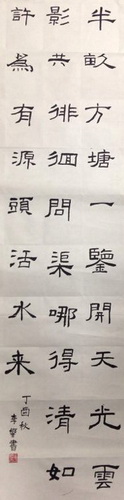 半畝方塘一鑒開天光雲
影共徘徊問渠哪得清如
許為有源頭活水来
丁酉秋
书